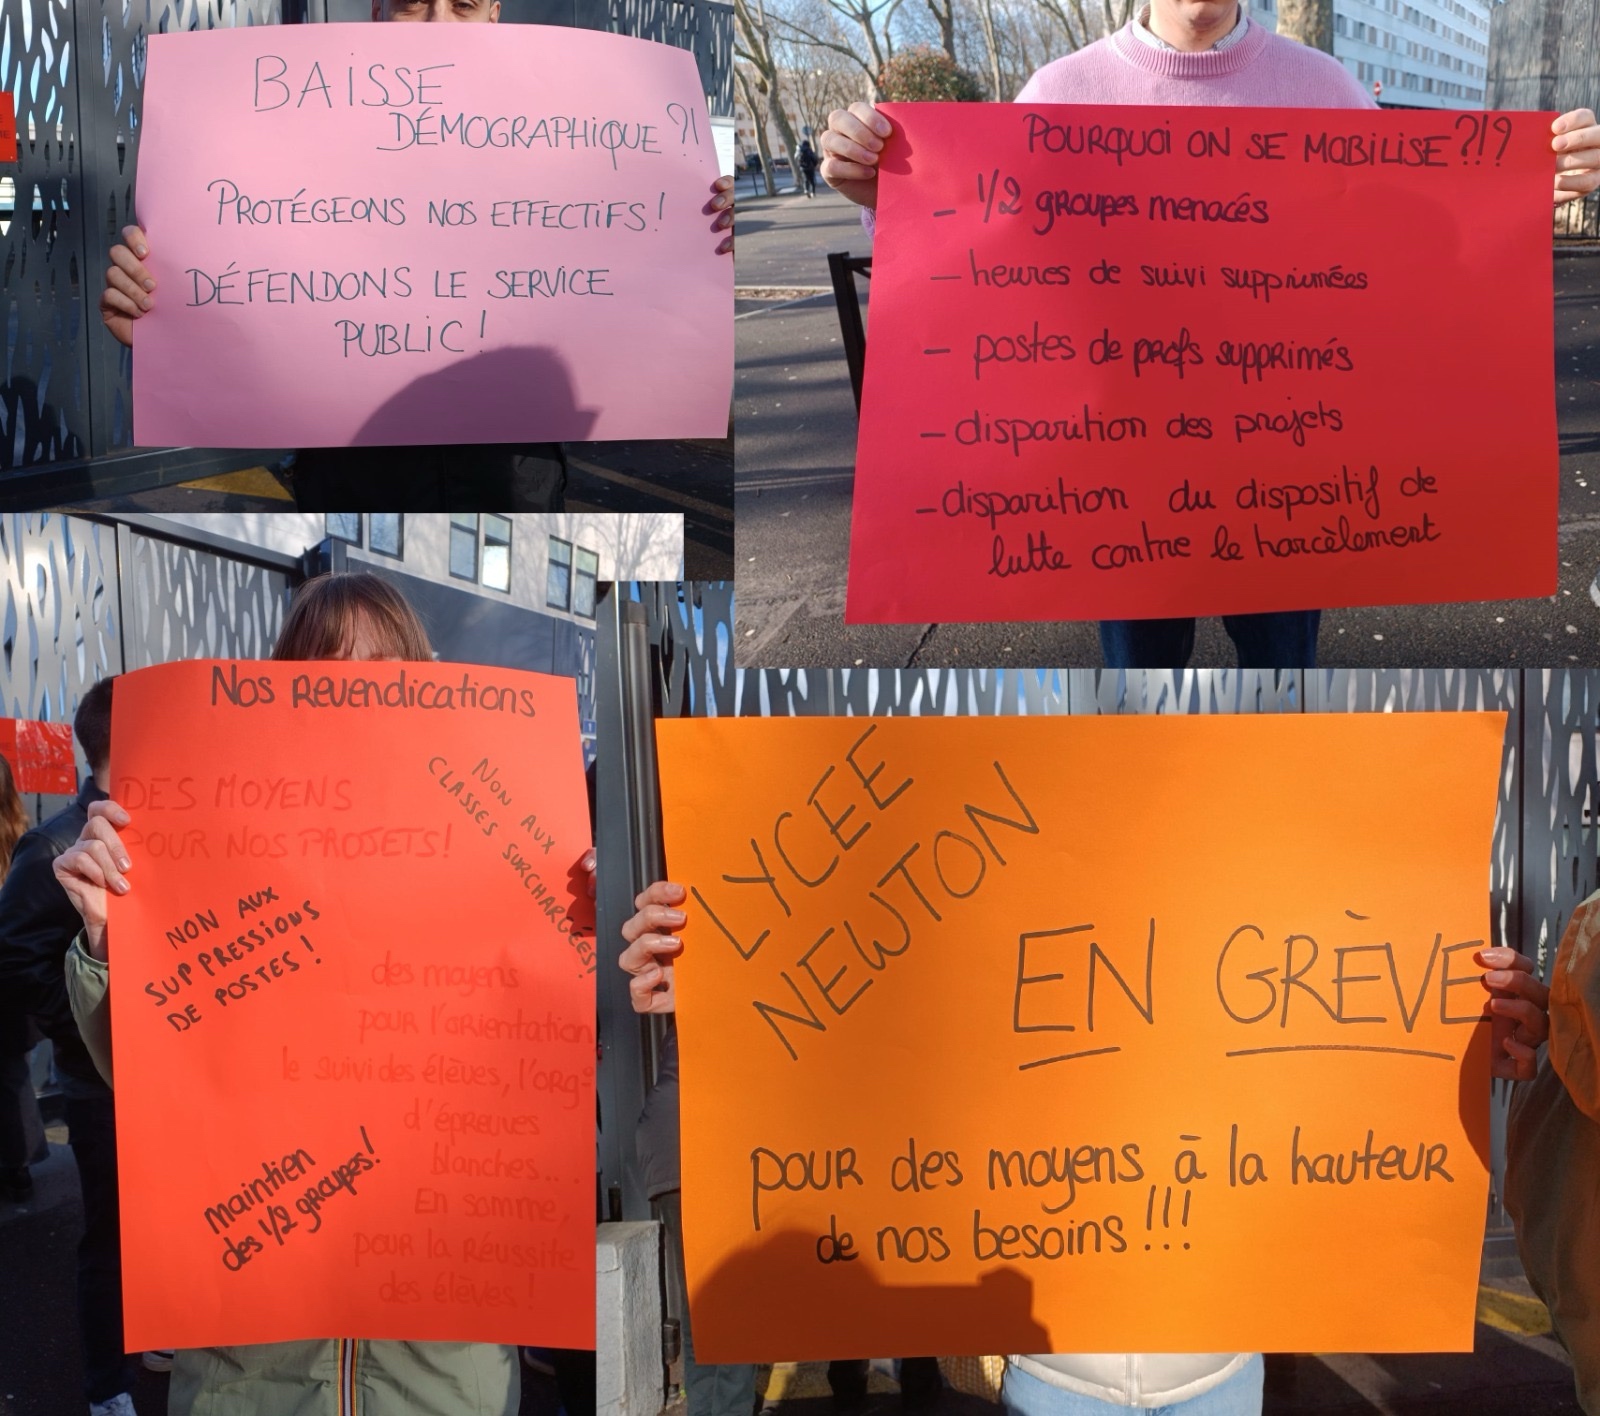 BAISSE
DÉMOGRAPHIQUE ?!
PROTÉGEONS NOS EFFECTIFS !
DÉFENDONS LE SERVICE
PUBLIC !
POURQUOI ON SE MOBILISE ?!?
- 1/2 groupes menacés
- heures de suivi supprimées
- postes de profs supprimés
- disparition des projets
- disparition du dispositif de
lutte contre le harcèlement
Nos Revendications
DES MOYENS
POUR NOS PROJETS !
NON AUX
CLASSES SURCHARGÉES !
NON AUX
SUPPRESSIONS
DE POSTES !
des moyens
pour l'orientation
le suivi des élèves, l'org°
d'épreuves
blanches...
En somme,
pour la réussite
des élèves !
maintien
des 1/2 groupes !
LYCEE
NEWTON
EN GRÈVE
pour des moyens à la hauteur
de nos besoins !!!